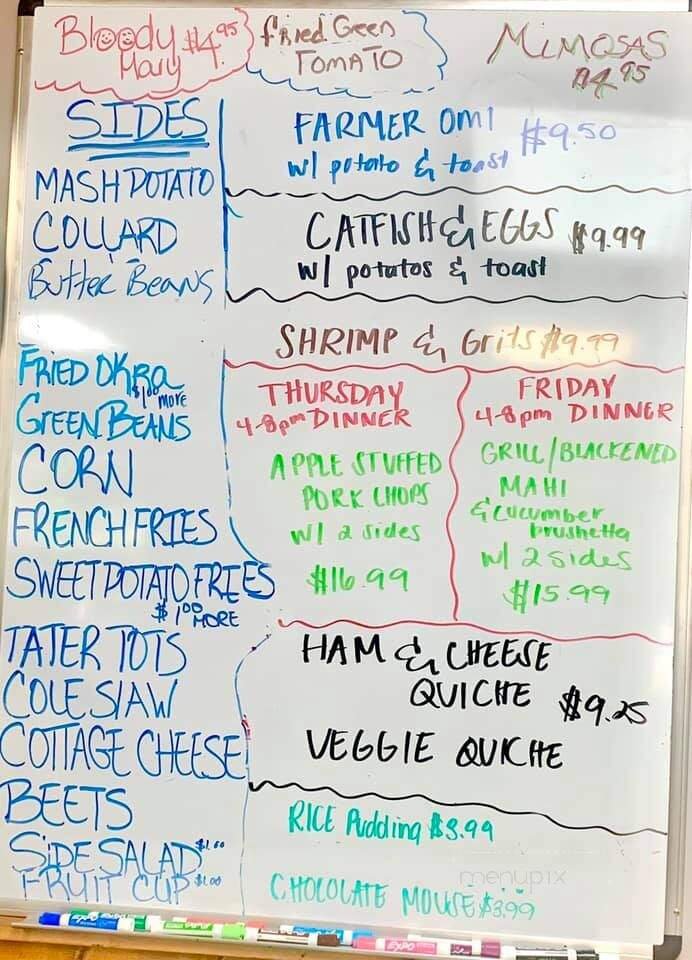 Bloody Mary $4.95
fried Green
TOMATO
MIMOSAS
$4.95
SIDES
MASH POTATO
COLLARD
Butter Beans
FRIED OKRa
$1.00 MORE
GREEN BEANS
CORN
FRENCH FRIES
SWEET POTATO FRIES
$1.00 MORE
TATER TOTS
COLE SLAW
COTTAGE CHEESE
BEETS
SIDE SALAD $1.00
FRUIT CUP $1.00
FARMER OMI $9.50
w/ potato & toast
CATFISH & EGGS $9.99
w/ potatos & toast
SHRIMP & Grits $9.99
THURSDAY
4-8pm DINNER
APPLE STUFFED
PORK CHOPS
w/ 2 sides
$16.99
FRIDAY
4-8pm DINNER
GRILL/BLACKENED
MAHI
& cucumber
brushetta
w/ 2 sides
$15.99
HAM & CHEESE
QUICHE $9.25
VEGGIE QUICHE
RICE Pudding $3.99
CHOCOLATE MOUSE $3.99
menupix
EXPO